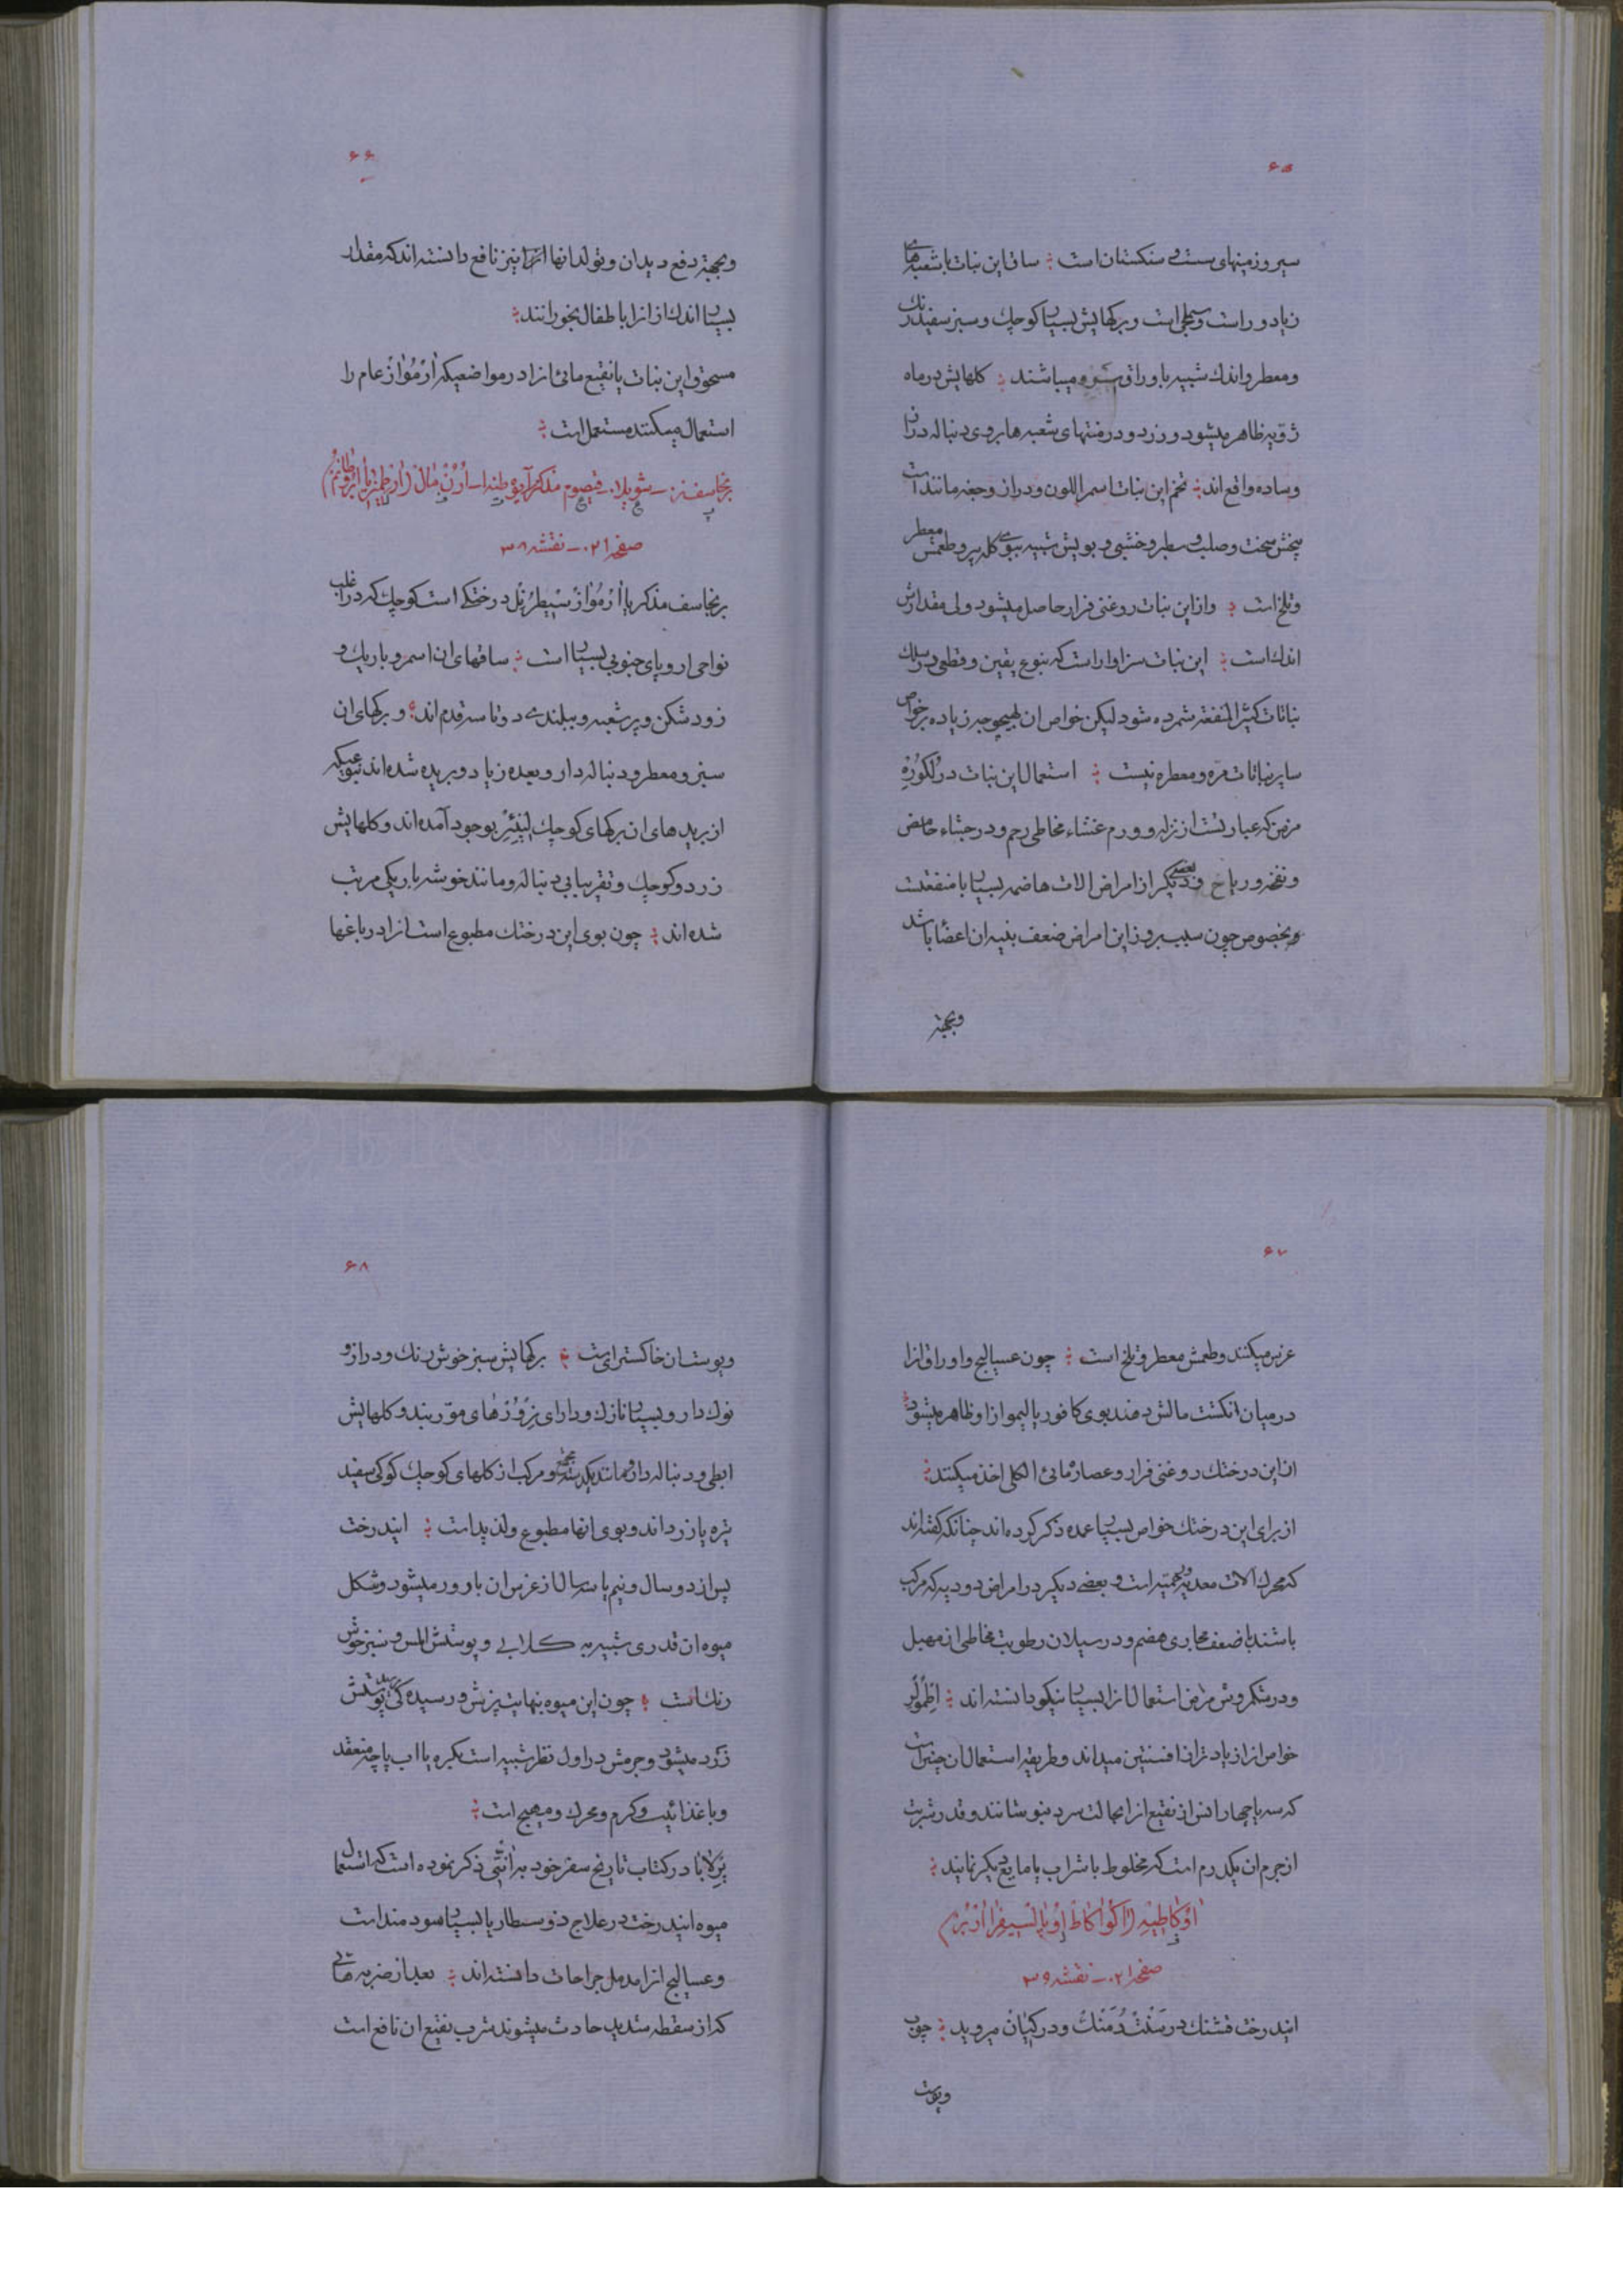 ۶۵
سیر و زمینهای پست و سنکستان است ؛ ساق این نبات با شعبه‌های
زیاد و راست و سطحی است و برکهایش بسیار کوچك و سبز سفید رنك
و معطر و اندك شبیه باوراق سرو میباشند ؛ کلهایش در ماه
ژویه ظاهر میشود و زرد و در منتهای شعبه‌ها بروی دنباله دراز
و ساده واقع‌اند ؛ تخم این نبات اسمر اللون و دراز و جعبه مانند است
بیخش سخت و صلب و سطبر و خشبی و بویش شبیه ببوی کله پر و طعمش معطر
و تلخ است ؛ و از این نبات روغنی فرار حاصل میشود ولی مقدارش
اندك است ؛ این نبات سزاوار است که بنوع یقین و قطعی در سلك
نباتات کثیر المنفعة شمرده شود لیکن خواص ان بهیچوجه زیاده بر خواص
سایر نباتات مره و معطره نیست ؛ استعمال این نبات در لکوره
مزمن که عبارتست از نزله و ورم غشاء مخاطی رحم و در جشاء حامض
و نفخه و ریاح و بعضی دیکر از امراض الات هاضمه بسیار با منفعتست
و بخصوص چون سبب بروز این امراض ضعف بنیه ان اعضا باشد
و بجهة
۶۶
و بجهة دفع دیدان و تولد انها انرا نیز نافع دانسته‌اند که مقدار
بسیار اندك از انرا باطفال بخورانند ؛
مسحوق این نبات یا نقیع مائی انرا در مواضعیکه اَرْمُوازْ عام را
استعمال میکنند مستعمل است ؛
برنجاسف نر - شویلا - قیصوم مذکر
صفحه ۲۱۰ - نقشه ۳۸
برنجاسف مذکر یا اَرْمُوازْ سیطرنل درختکی است کوچك که در اغلب
نواحی اروپای جنوبی بسیار است ؛ ساقهای ان اسمر و باریك و
زود شکن و پر شعبه و ببلندی دو تا سه قدم‌اند ؛ و برکهای ان
سبز و معطر و دنباله دار و بعده زیاد و بریده شده‌اند بنوعیکه
از برید‌های ان برکهای کوچك لینئر بوجود آمده‌اند و کلهایش
زرد و کوچك و تقریبا بی دنباله و مانند خوشه باریکی مرتب
شده‌اند ؛ چون بوی این درختك مطبوع است انرا در باغها
۶۷
غرس میکنند و طعمش معطر و تلخ است ؛ چون عسالیج و اوراق انرا
در میان انکشت مالش دهند بوی کافور یا لیمو از او ظاهر میشود ؛
از این درختك روغنی فرار و عصاره مائی الکلی اخذ میکنند ؛
از برای این درختك خواص بسیار عمده ذکر کرده‌اند چنانکه کفته‌اند
که محرك الات معدیه و رحمیه است و بعضی دیکر در امراض دودیه که مرکب
باشند با ضعف مجاری هضم و در سیلان رطوبت مخاطی از مهبل
و در شکم روش مزمن استعمال انرا بسیار نیکو دانسته‌اند ؛
خواص انرا زیادتر از افسنتین میداند و طریقه استعمال ان چنین است
که سه یا چهار انس از نقیع انرا بحالت سرد بنوشانند و قدر شربت
از جرم ان یکدرم است که مخلوط با شراب یا مایع دیکر نمایند ؛
صفحه ۲۱۰ - نقشه ۳۹
ایندرخت قشنك در سَنْتْ دُمَنْك و در کیان میروید ؛ چوب
و پوست
۶۸
و پوست ان خاکستر‌ای است ؛ برکهایش سبز خوش رنك و دراز و
نوك دار و بسیار نازك و دارای نرووزهای مورّبند و کلهایش
ابطی و دنباله دار و مانند یکدسته مجتمعه و مرکب از کلهای کوچك کوکی سفید
تیره یا زرد‌اند و بوی انها مطبوع و لذیذ است ؛ ایندرخت
پس از دو سال و نیم یا سه سال از غرس ان بارور میشود و شکل
میوه ان قدری شبیه به کلابی و پوستش املس و سبز خوش
رنك است ؛ چون این میوه نهایت برش و رسیده کی رسد پوستش
زرد میشود و جرمش در اول نظر شبیه است بکره یا اب پاچه منعقد
و با غذائیت و کرم و محرك و مهیج است ؛
پرلابا در کتاب تاریخ سفر خود به آنتی ذکر نموده است که استعمال
میوه ایندرخت در علاج ذوسنطاریا بسیار سودمند است
و عسالیج انرا مدمل جراحات دانسته‌اند ؛ بعد از ضربه‌هائی
که از سقطه شدید حادث میشوند شرب نقیع ان نافع است